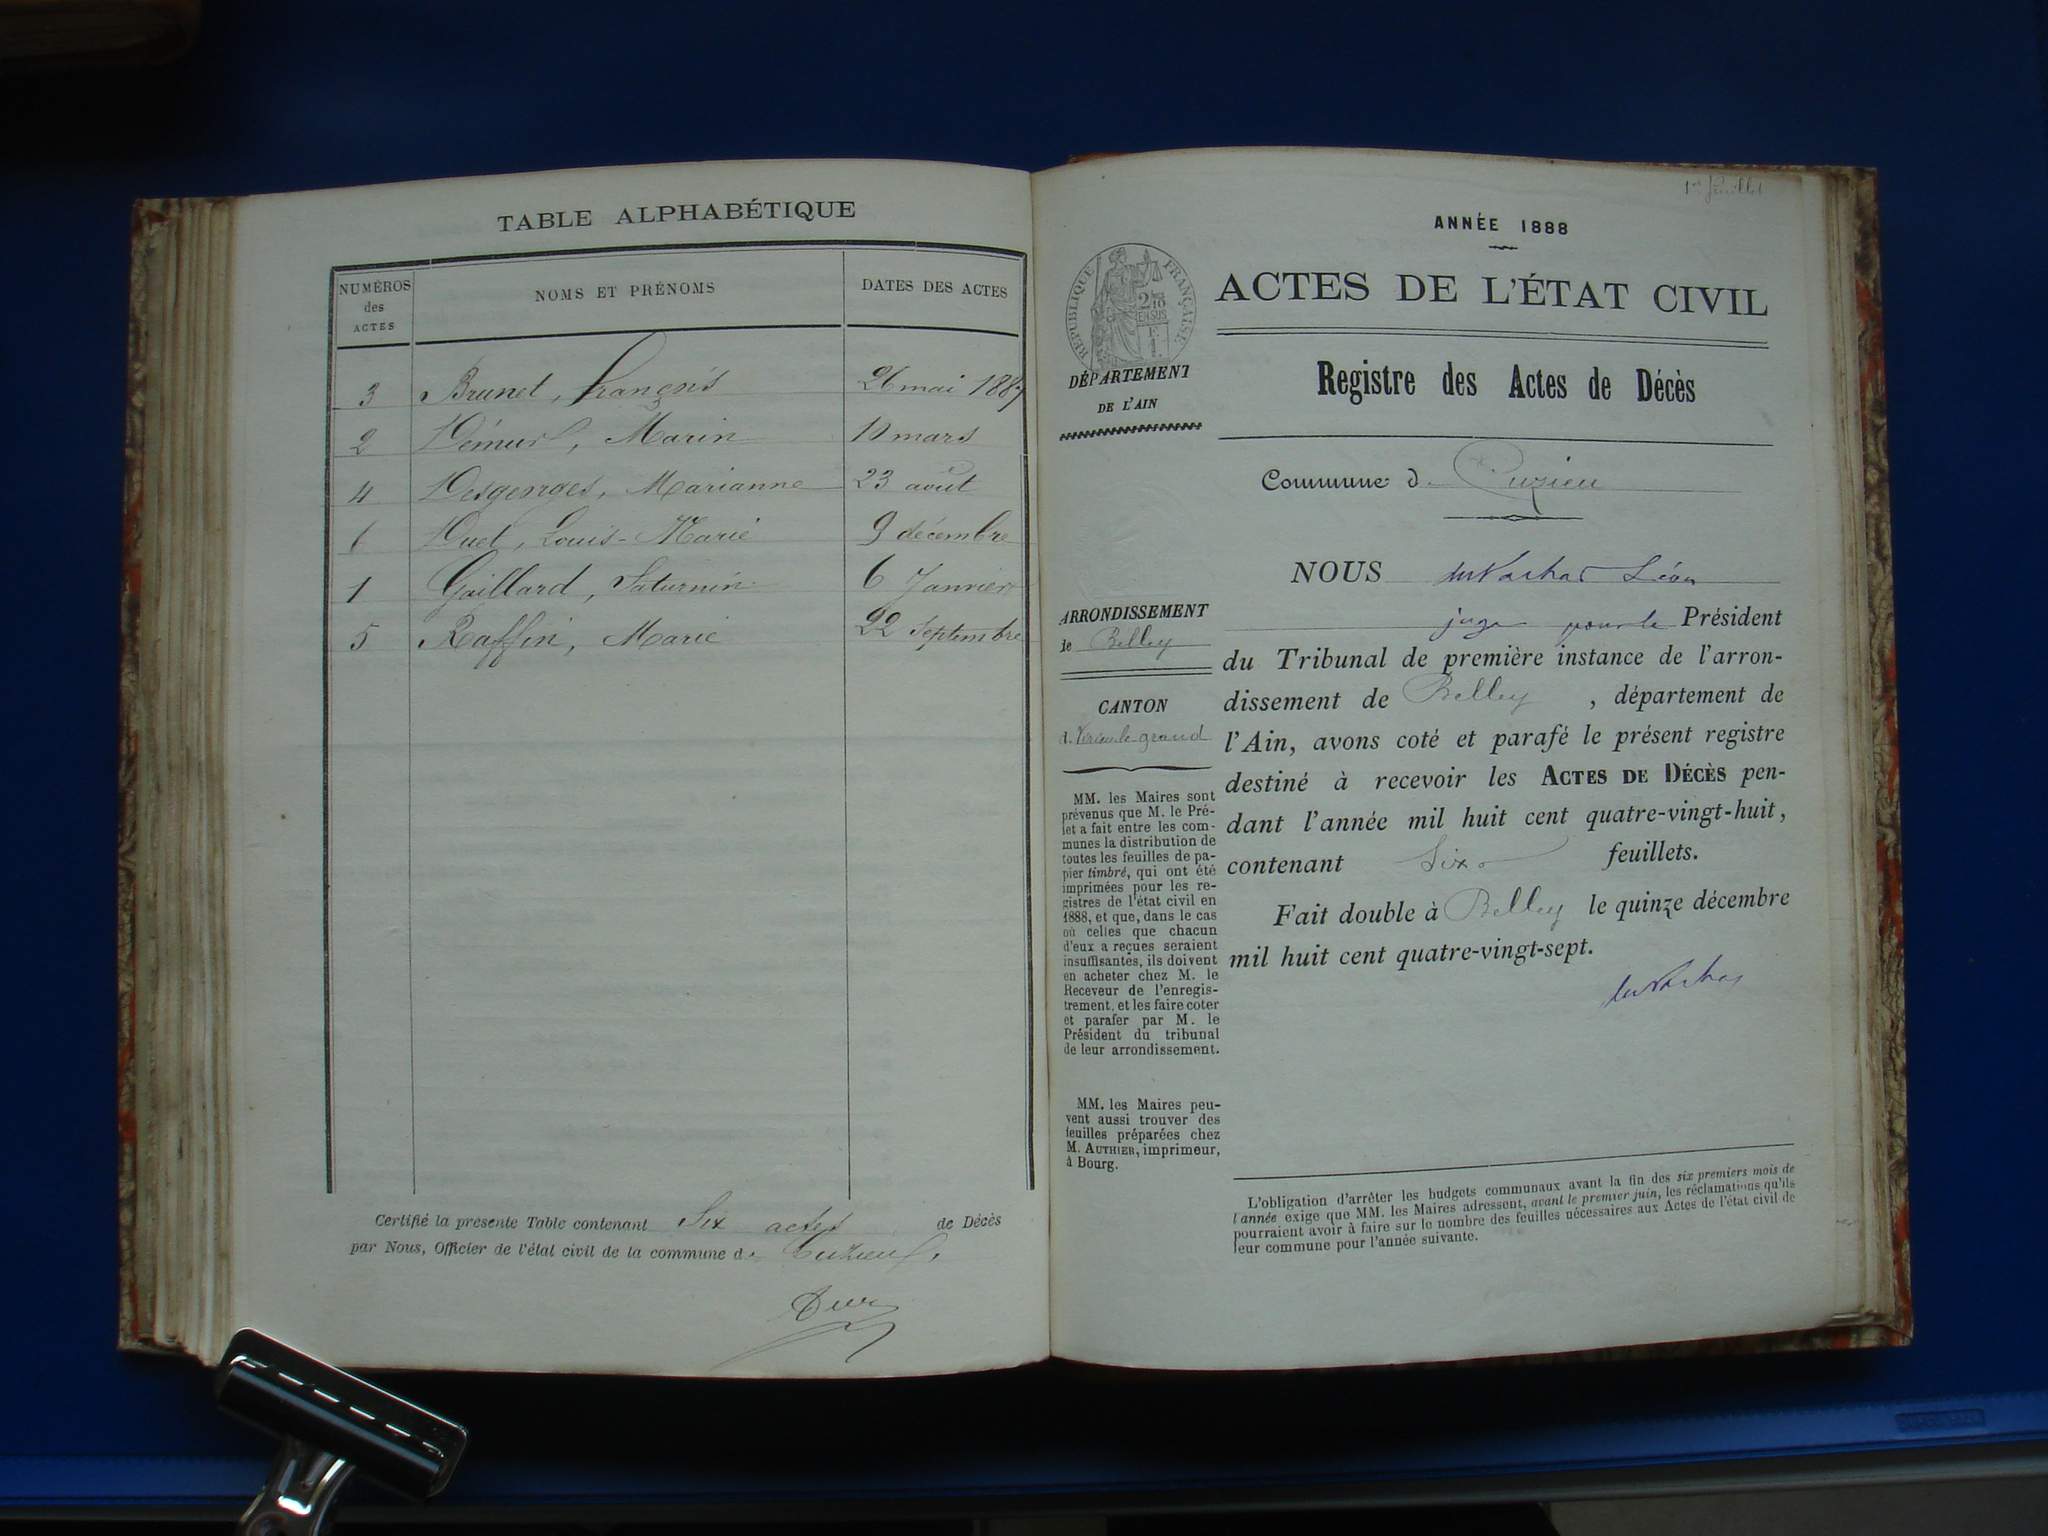 TABLE ALPHABÉTIQUE
NUMÉROS des ACTES
NOMS ET PRÉNOMS
DATES DES ACTES
3 Brunet, François 26 mai 1887
2 Marin 10 mars
4 Desgeorges, Marianne 23 août
6 Duet, Louis-Marie 9 décembre
1 Gaillard, Saturnin 6 Janvier
5 Raffin, Marie 22 Septembre
Certifié la présente Table contenant Six actes de Décès
par Nous, Officier de l'état civil de la commune de Cuzieu.
1er feuillet
ANNÉE 1888
ACTES DE L'ÉTAT CIVIL
RÉPUBLIQUE FRANÇAISE
DÉPARTEMENT
DE L'AIN
Registre des Actes de Décès
Commune d. Cuzieu
NOUS Léon
juge pour le Président
du Tribunal de première instance de l'arron-
dissement de Belley, département de
l'Ain, avons coté et parafé le présent registre
destiné à recevoir les ACTES DE DÉCÈS pen-
dant l'année mil huit cent quatre-vingt-huit,
contenant Six feuillets.
Fait double à Belley le quinze décembre
mil huit cent quatre-vingt-sept.
ARRONDISSEMENT
de Belley
CANTON
d. Virieu-le-grand
MM. les Maires sont
prévenus que M. le Pré-
fet a fait entre les com-
munes la distribution de
toutes les feuilles de pa-
pier timbré, qui ont été
imprimées pour les re-
gistres de l'état civil en
1888, et que, dans le cas
où celles que chacun
d'eux a reçues seraient
insuffisantes, ils doivent
en acheter chez M. le
Receveur de l'enregis-
trement, et les faire coter
et parafer par M. le
Président du tribunal
de leur arrondissement.
MM. les Maires peu-
vent aussi trouver des
feuilles préparées chez
M. AUTHIER, imprimeur,
à Bourg.
L'obligation d'arrêter les budgets communaux avant la fin des six premiers mois de
l'année exige que MM. les Maires adressent, avant le premier juin, les réclamations qu'ils
pourraient avoir à faire sur le nombre des feuilles nécessaires aux Actes de l'état civil de
leur commune pour l'année suivante.